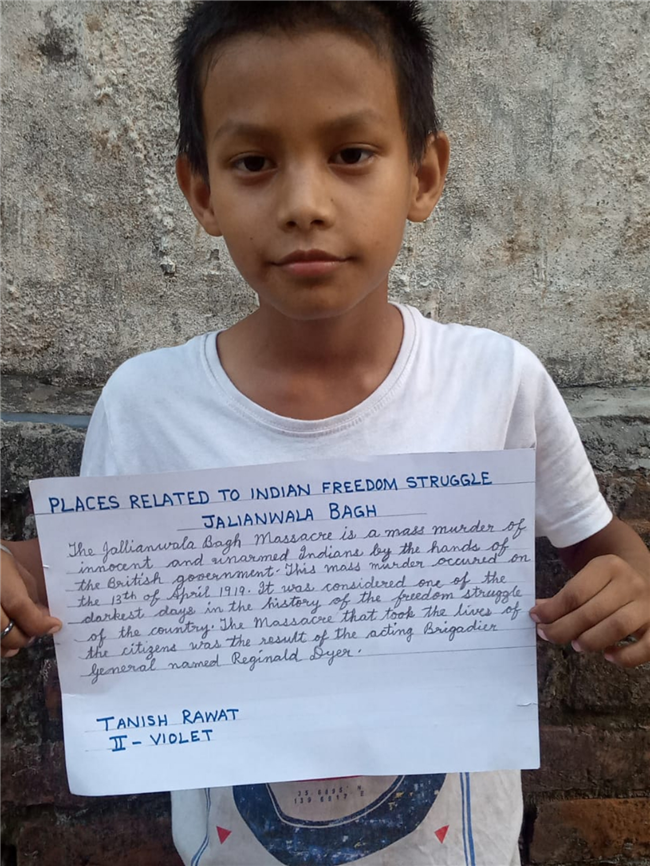 PLACES RELATED TO INDIAN FREEDOM STRUGGLE
JALIANWALA BAGH
The Jallianwala Bagh Massacre is a mass murder of
innocent and unarmed Indians by the hands of
the British government. This mass murder occured on
the 13th of April 1919. It was considered one of the
darkest days in the history of the freedom struggle
of the country. The Massacre that took the lives of
the citizens was the result of the acting Brigadier
General named Reginald Dyer.
TANISH RAWAT
II - VIOLET